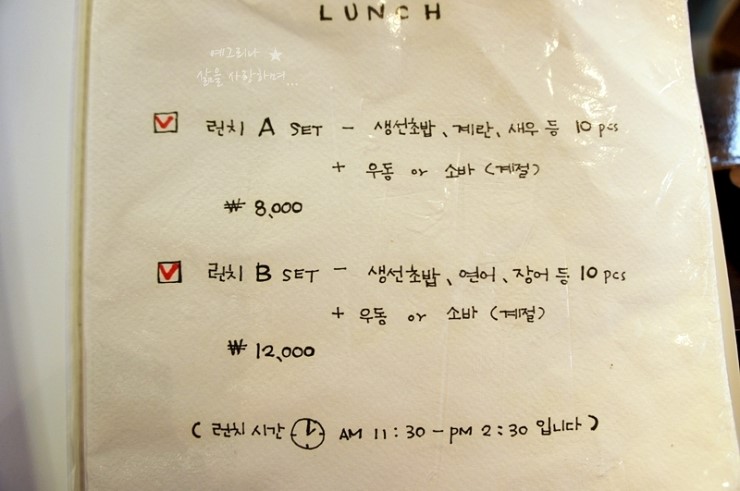 LUNCH
예그리나 ★
삶을 사랑하며...
런치 A SET - 생선초밥, 계란, 새우 등 10 pcs
+ 우동 or 소바 (계절)
₩ 8,000
런치 B SET - 생선초밥, 연어, 장어 등 10 pcs
+ 우동 or 소바 (계절)
₩ 12,000
( 런치 시간 AM 11:30 - PM 2:30 입니다 )